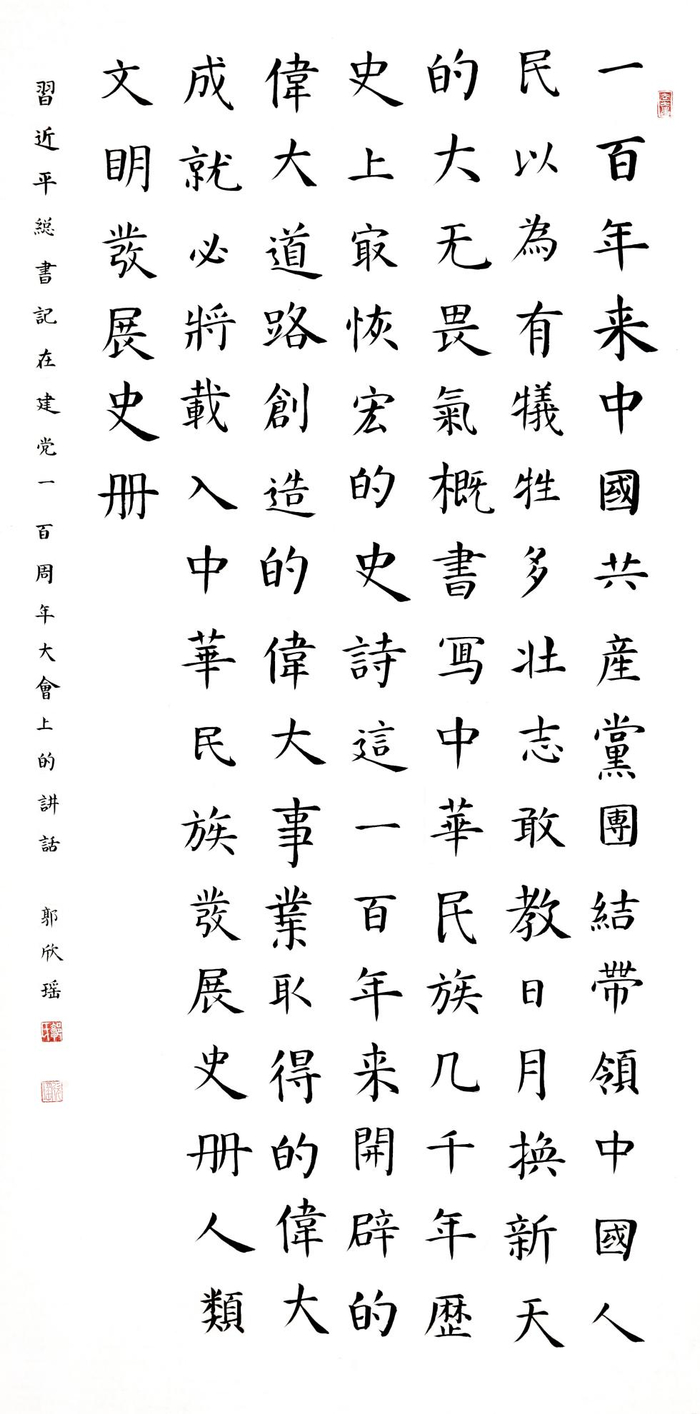 一百年来中國共産黨團結帶領中國人
民以為有犧牲多壯志敢教日月换新天
的大无畏氣概書冩中華民族几千年歴
史上冣恢宏的史詩這一百年来開辟的
偉大道路創造的偉大事業取得的偉大
成就必將載入中華民族發展史册人類
文眀發展史册
習近平総書記在建党一百周年大會上的講話 郭欣瑶